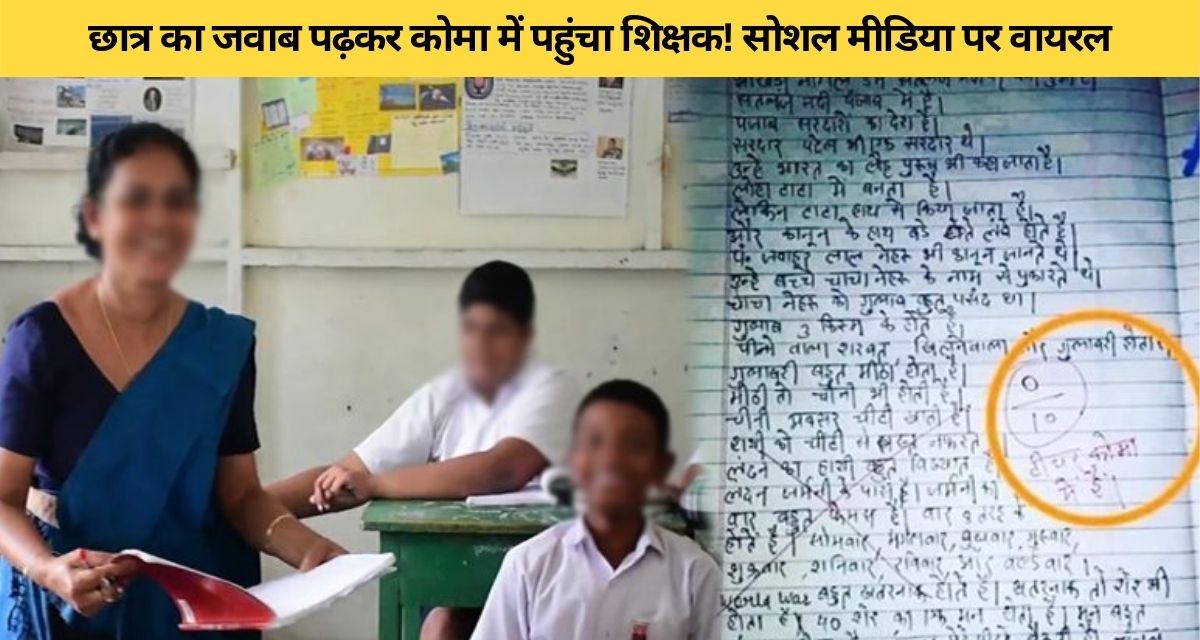 छात्र का जवाब पढ़कर कोमा में पहुंचा शिक्षक! सोशल मीडिया पर वायरल
सतलुज नदी पंजाब में है।
पंजाब सरदारों का देश है।
सरदार पटेल भी एक सरदार थे।
उन्हे भारत का लौह पुरुष भी कहा जाता है।
लोहा टाटा में बनता है।
लेकिन टाटा हाथ से किया जाता है।
और कानून के हाथ बडे लंबे होते है।
पं. जवाहर लाल नेहरू भी कानून जानते थे।
उन्हे बच्चे चाचा नेहरू के नाम से पुकारते थे।
चाचा नेहरू को गुलाब बहुत पसंद था।
गुलाब 3 किस्म के होते है।
गुलाबरी बहुत मीठी होती है।
मीठी तो चीनी भी होती है।
चीनी अक्सर चीटी खाती है।
हाथी को चीटी से नफरत
लंदन का हाथी बहुत विख्यात
लंदन जर्मनी के पास है। जर्मनी का
वार बहुत फेमस है। वार 8 तरह के
होते है। सोमवार, मंगलवार, बुधवार, गुरुवार,
शुक्रवार, शनिवार, रविवार, और वर्ल्डवार।
World War बहुत खतरनाक होते है। खतरनाक तो शेर भी
होता है।
0
10
टीचर कोमा
में है।